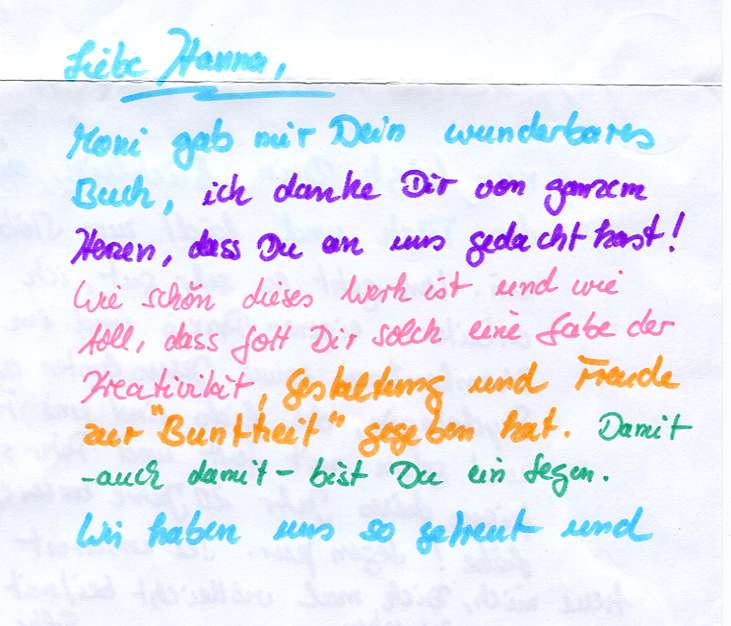 Liebe Hanna,
Moni gab mir Dein wunderbares
Buch, ich danke Dir von ganzem
Herzen, dass Du an uns gedacht hast!
Wie schön dieses Werk ist und wie
toll, dass Gott Dir solch eine Gabe der
Kreativität, Gestaltung und Freude
zur "Buntheit" gegeben hat. Damit
-auch damit- bist Du ein Segen.
Wir haben uns so gefreut und